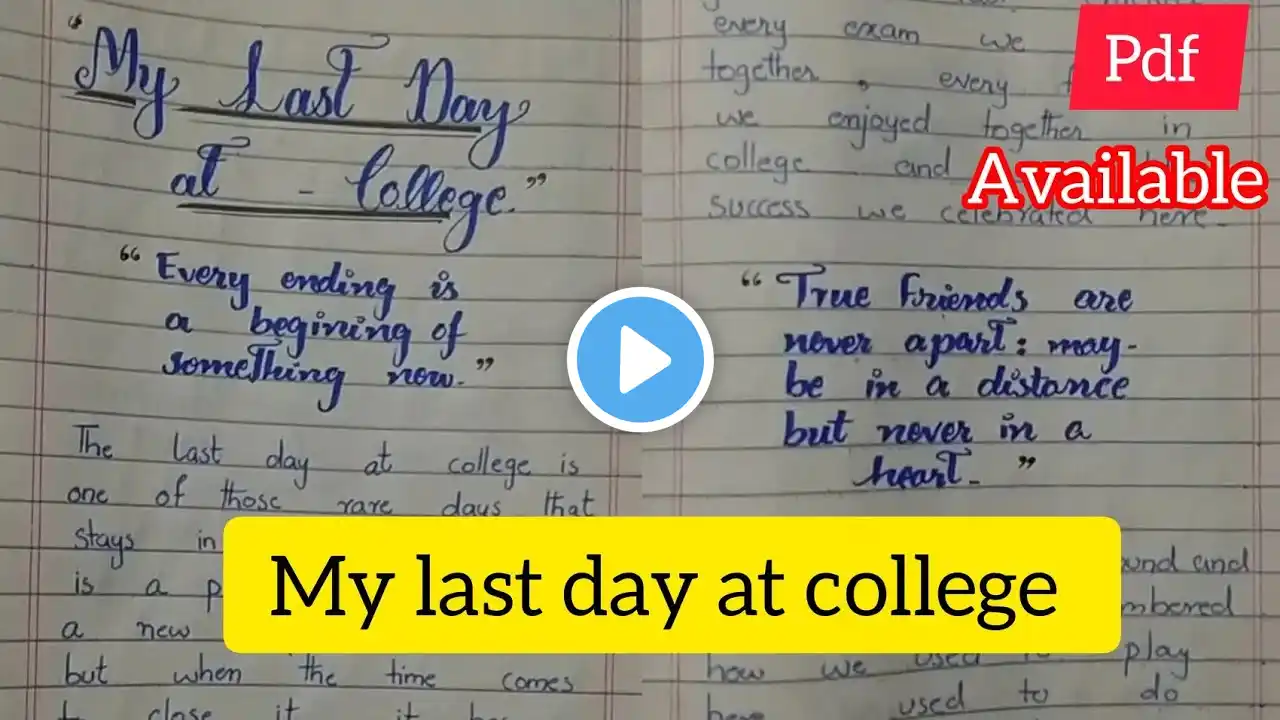 “My Last Day
at - College.”
“Every ending is
a begining of
something now.”
The last day at college is
one of those rare days that
stays in
is a
a new
but when the time comes
close it
every exam we
together, every
we enjoyed together in
college and
success we celebrated here.
“True Friends are
never apart: may-
be in a distance
but never in a
heart.”
and
how we used to play
used to do
Pdf
Available
My last day at college